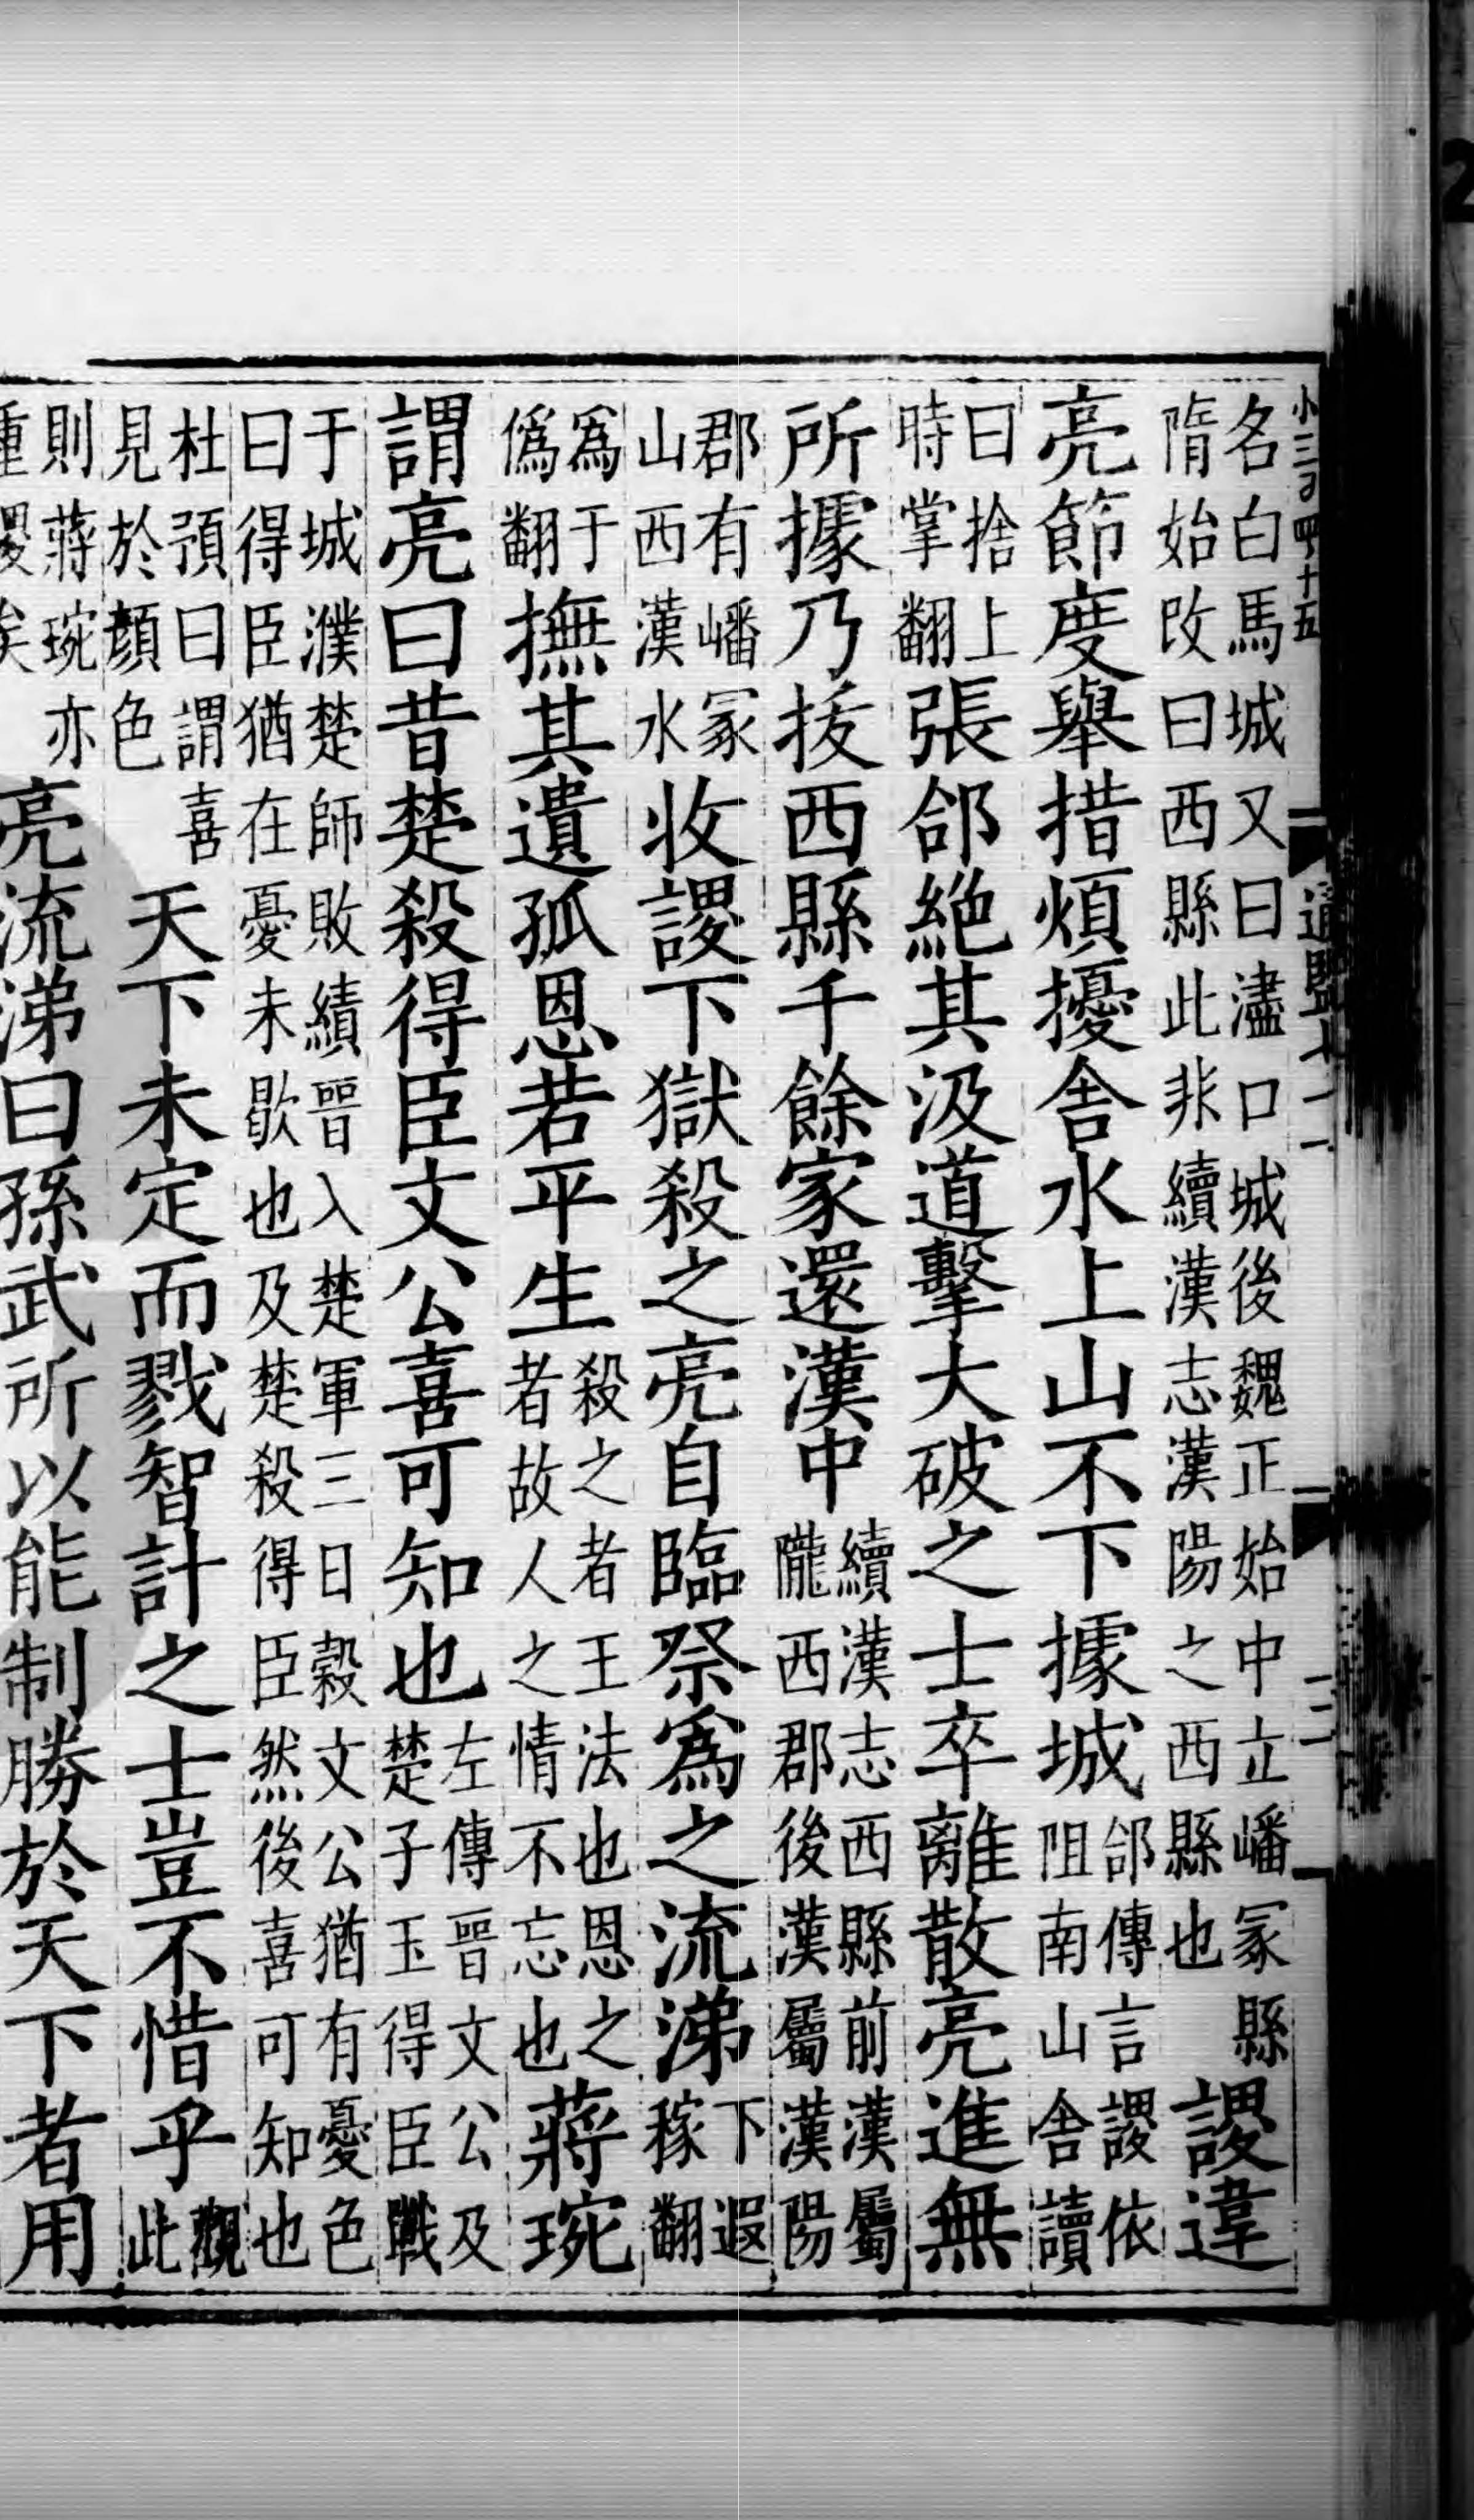 小三百四十五
通鑑七十一
二
名白馬城又曰濜口城後魏正始中立嶓冢縣
隋始改曰西縣此非續漢志漢陽之西縣也
謖違
亮節度舉措煩擾舍水上山不下據城
郃傳言謖依
阻南山舍讀
曰捨上
時掌翻
張郃絶其汲道擊大破之士卒離散亮進無
所據乃拔西縣千餘家還漢中
續漢志西縣前漢屬
隴西郡後漢屬漢陽
郡有嶓冢
山西漢水
收謖下獄殺之亮自臨祭爲之流涕
下遐
稼翻
爲于
僞翻
撫其遺孤恩若平生
殺之者王法也恩之
者故人之情不忘也
蔣琬
謂亮曰昔楚殺得臣文公喜可知也
左傳晉文公及
楚子玉得臣戰
于城濮楚師敗績晉入楚軍三日穀文公猶有憂色
曰得臣猶在憂未歇也及楚殺得臣然後喜可知也
杜預曰謂喜
見於顔色
天下未定而戮智計之士豈不惜乎
觀此
則蔣琬亦
重謖矣
亮流涕曰孫武所以能制勝於天下者用